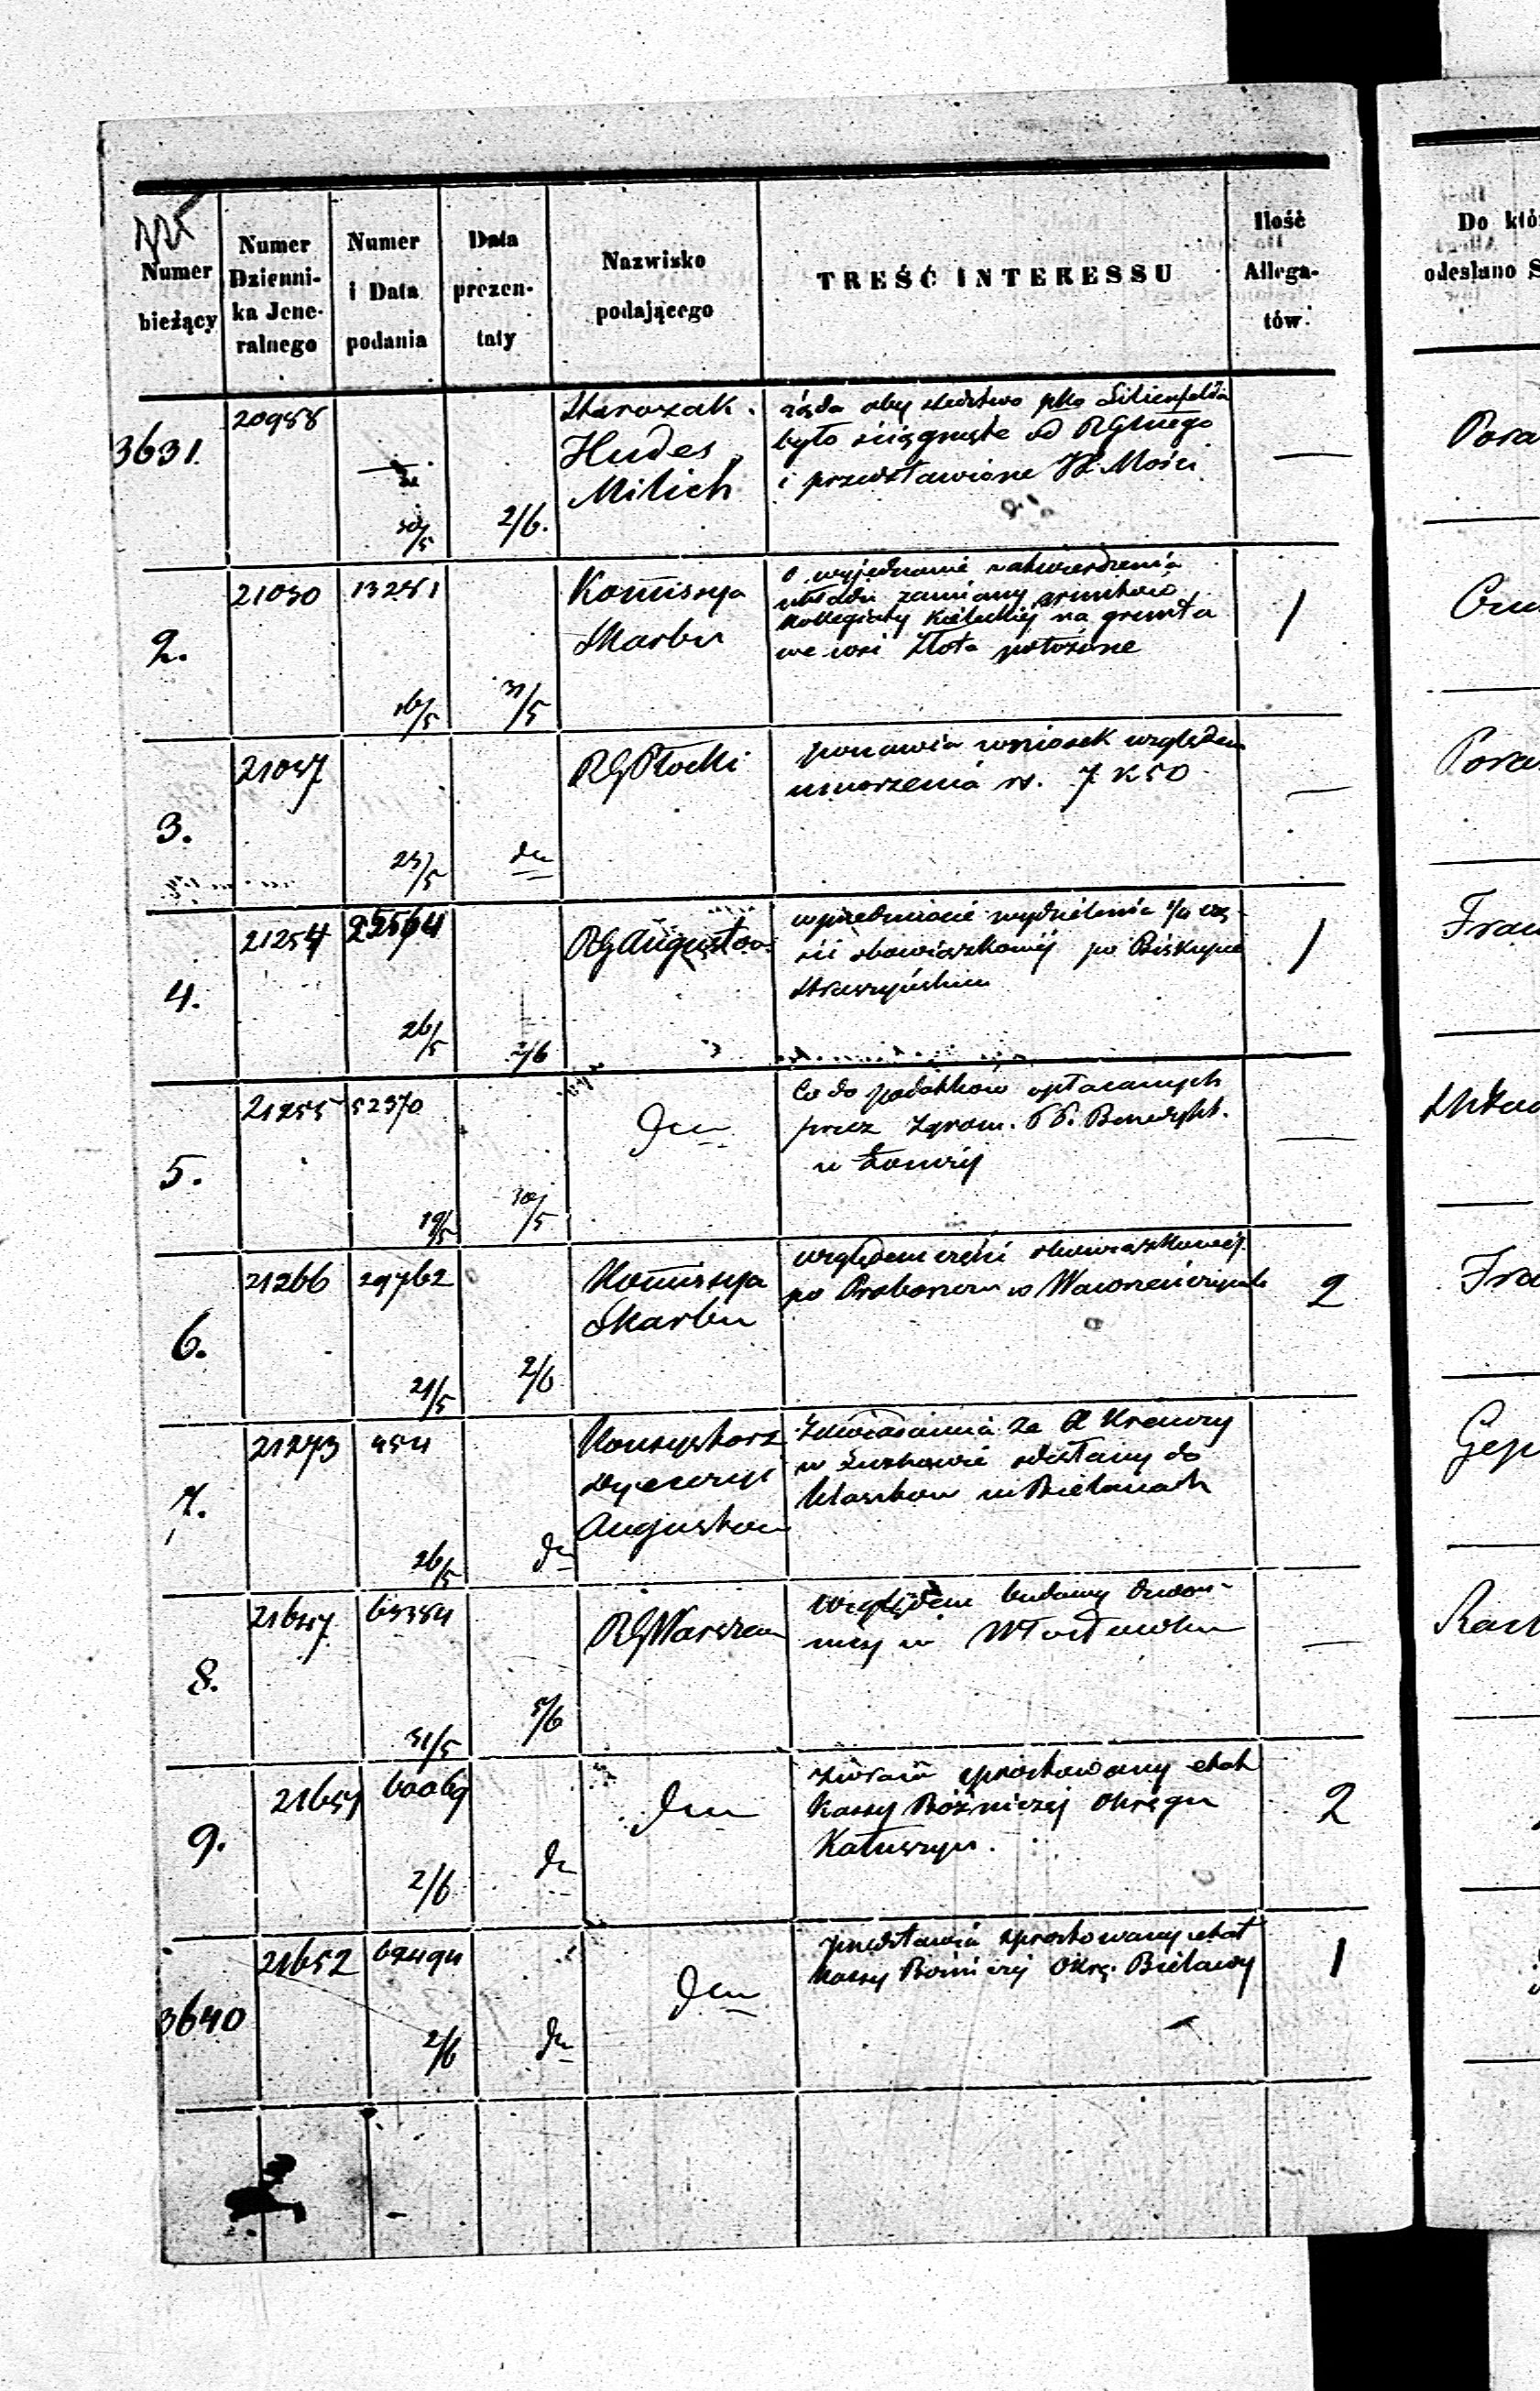 Numer bieżący
Numer Dzienni-ka Jene-ralnego
Numer i Data podania
Data prezen-taty
Nazwisko podającego
TREŚĆ INTERESSU
Ilość Allega-tów.
3631.
20988
30/5
2/6.
Starozak.
Hudes
Milich
żąda aby śledztwo pko Lilienfelda
było ściągnięte od RGnego
i przedstawione JK Mości
—
2.
21030
13281
16/5
31/5
Komissya
Skarbu
o wyjednanie zatwierdzenia
układu zamiany gruntów
Kollegiaty Kieleckiej na grunta
we wsi Złota położone
1
3.
21047
23/5
du
RGPłocki
ponawia wniosek względem
umorzenia rs. 7 k 50
—
4.
21254
25564
26/5
2/6
RGAugustow
wprzedmiocie wydzielenia 1/4 czę-
ści obowiązkowéj po Biskupie
Straszyńskim
1
5.
21255
52370
19/5
30/5
dtto
Co do podatków opłacanych
przez Zgrom. PP. Benedykt.
w Łomży
—
6.
21266
29762
21/5
2/6
Komissya
Skarbu
względem części obowiązkowej
po Proboszczu w Wawrzeńczycach
2
7.
21273
454
26/5
du
Konsystorz
Dyecezyi
Augustow
Zawiadamia że X Krewzy
w odesłany do
Klasztoru w Bielanach
8.
21647
63354
31/5
5/6
RGWarszaw
względem budowy dzwon-
nicy w Włocławku
—
9.
21651
60069
2/6
du
dtto
zwraca sprostowany etat
Kassy Bóżniczej Okręgu
Kałuszyn.
2
3640
21652
62494
2/6
du
dtto
przedstawia sprostowany etat
Kassy Bóżniczej Okrę. Bielawy
1
Do któ
odesłano S